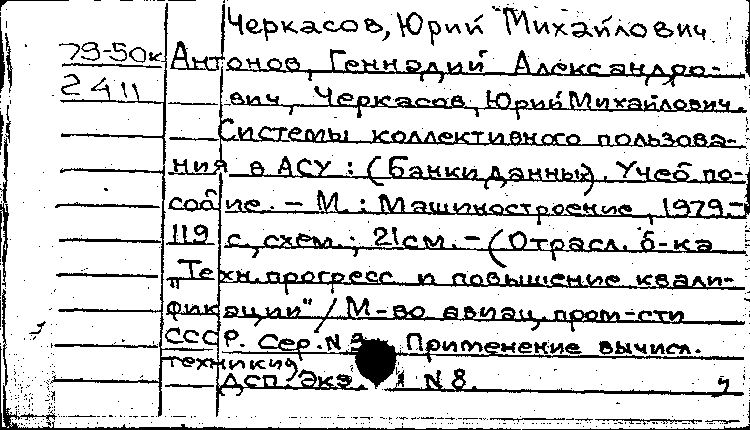 Черкасов, Юрий Михайлович
79-50к Антонов, Геннадий Александро-
2411 вич, Черкасов, Юрий Михайлович.
Системы коллективного пользова-
ния в АСУ : (Банки данных). Учеб. по-
собие. - М. : Машиностроение, 1979.-
119 с., схем.; 21 см. - (Отрасл. б-ка
"Техн. прогресс и повышение квали-
фикации" / М-во авиац. пром-сти
СССР. Сер. N Применение вычисл.
техники)
ДСП. Экз. N 8.